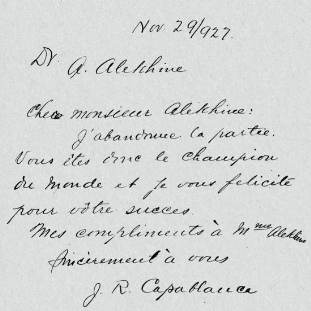 Nov 29/927.
Dr A. Alekhine
Cher monsieur Alekhine:
J'abandonne la partie.
Vous êtes donc le champion
du monde et je vous felicite
pour vôtre succes
Mes compliments à Mme Alekhine
Sincèrement à vous
J. R. Capablanca